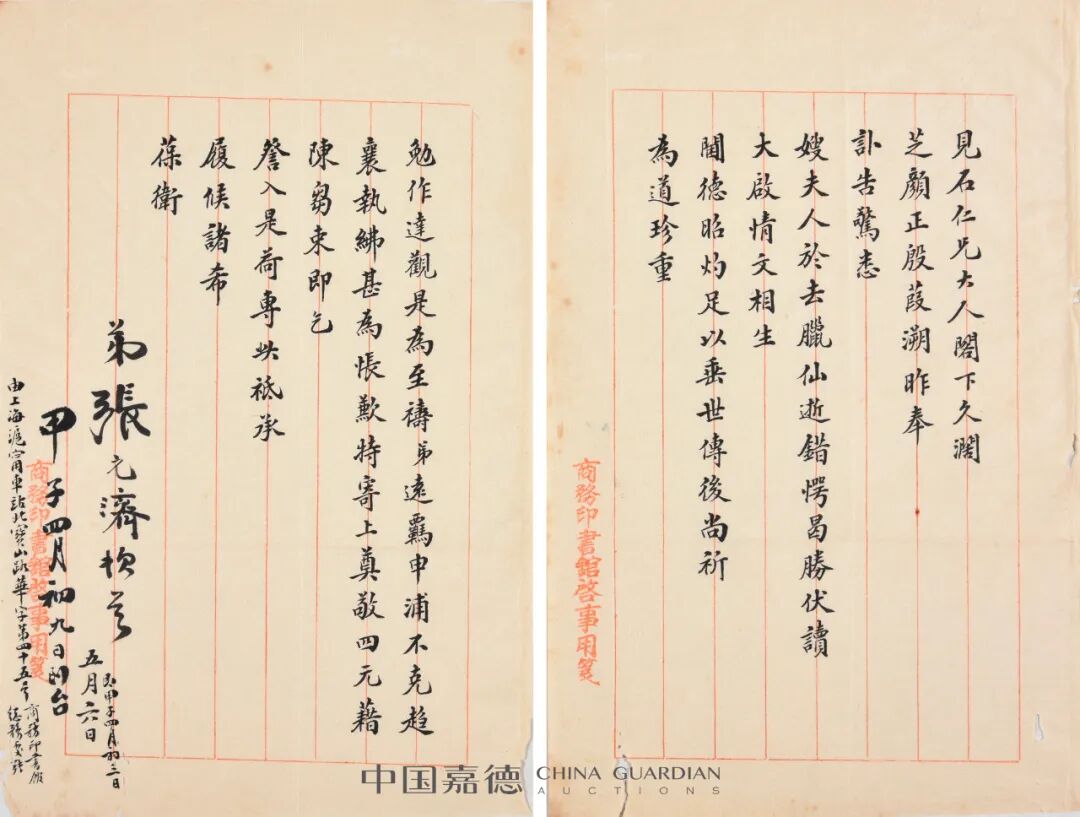 見石仁兄大人閣下久濶
芝顏正殷葭溯昨奉
訃告驚悉
嫂夫人於去臘仙逝錯愕曷勝伏讀
大啟情文相生
閫德昭灼足以垂世傳後尚祈
為道珍重
商務印書館啓事用箋
勉作達觀是為至禱弟遠羈申浦不克趨
襄執紼甚為悵歉特寄上奠敬四元藉
陳芻束即乞
詧入是荷專此祗承
履候諸希
葆衛
弟張元濟頓首
五月六日
甲子四月初三日
甲子四月初九日到台
商務印書館啓事用箋
由上海滬甯車站北寶山路華字第四十五号
商務印書館
中国嘉德
CHINA GUARDIAN
AUCTIONS